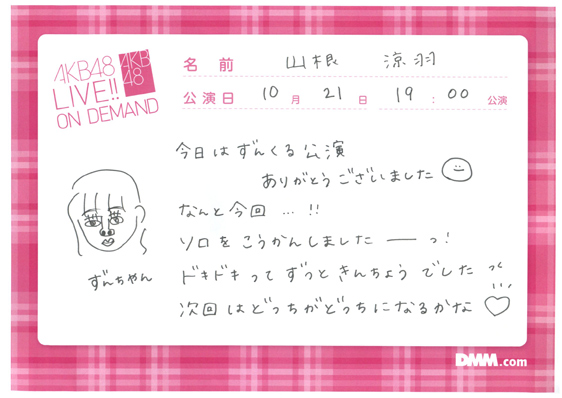 AKB48
LIVE!!
ON DEMAND
AKB
48
名前 山根 涼羽
公演日 10月 21日 19:00 公演
今日はずんくる公演
ありがとうございました
なんと今回…!!
ソロをこうかんしましたーっ!
ドキドキってずっときんちょうでした
次回はどっちがどっちになるかな
ずんちゃん
DMM.com